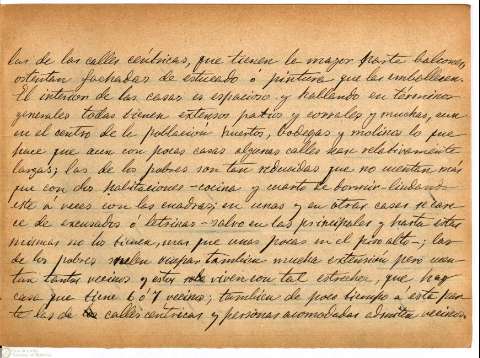 las de las calles céntricas, que tienen la mayor parte balcones,
ostentan fachadas de estucado ó pintura que las embellecen.
El interior de las casas es espacioso y hablando en términos
generales todas tienen extensos patios y corrales y muchas, aun
en el centro de la población huertos, bodegas y molinos lo que
hace que aun con pocas casas algunas calles sean relativamente
largas; las de los pobres son tan reducidas que no cuentan más
que con dos habitaciones - cocina y cuarto de dormir - lindando
este á veces con las cuadras; en unas y en otras casas se care-
ce de excusados ó letrinas - salvo en las principales y hasta estas
mismas no los tienen, mas que unas pocas en el piso alto -; las
de los pobres suelen ocupar tambien mucha extensión pero cuen-
tan tantos vecinos y estos viven con tal estrechez, que hay
casa que tiene 6 ó 7 vecinos; tambien de poco tiempo á esta par-
te las de calles céntricas y personas acomodadas admiten vecinos.